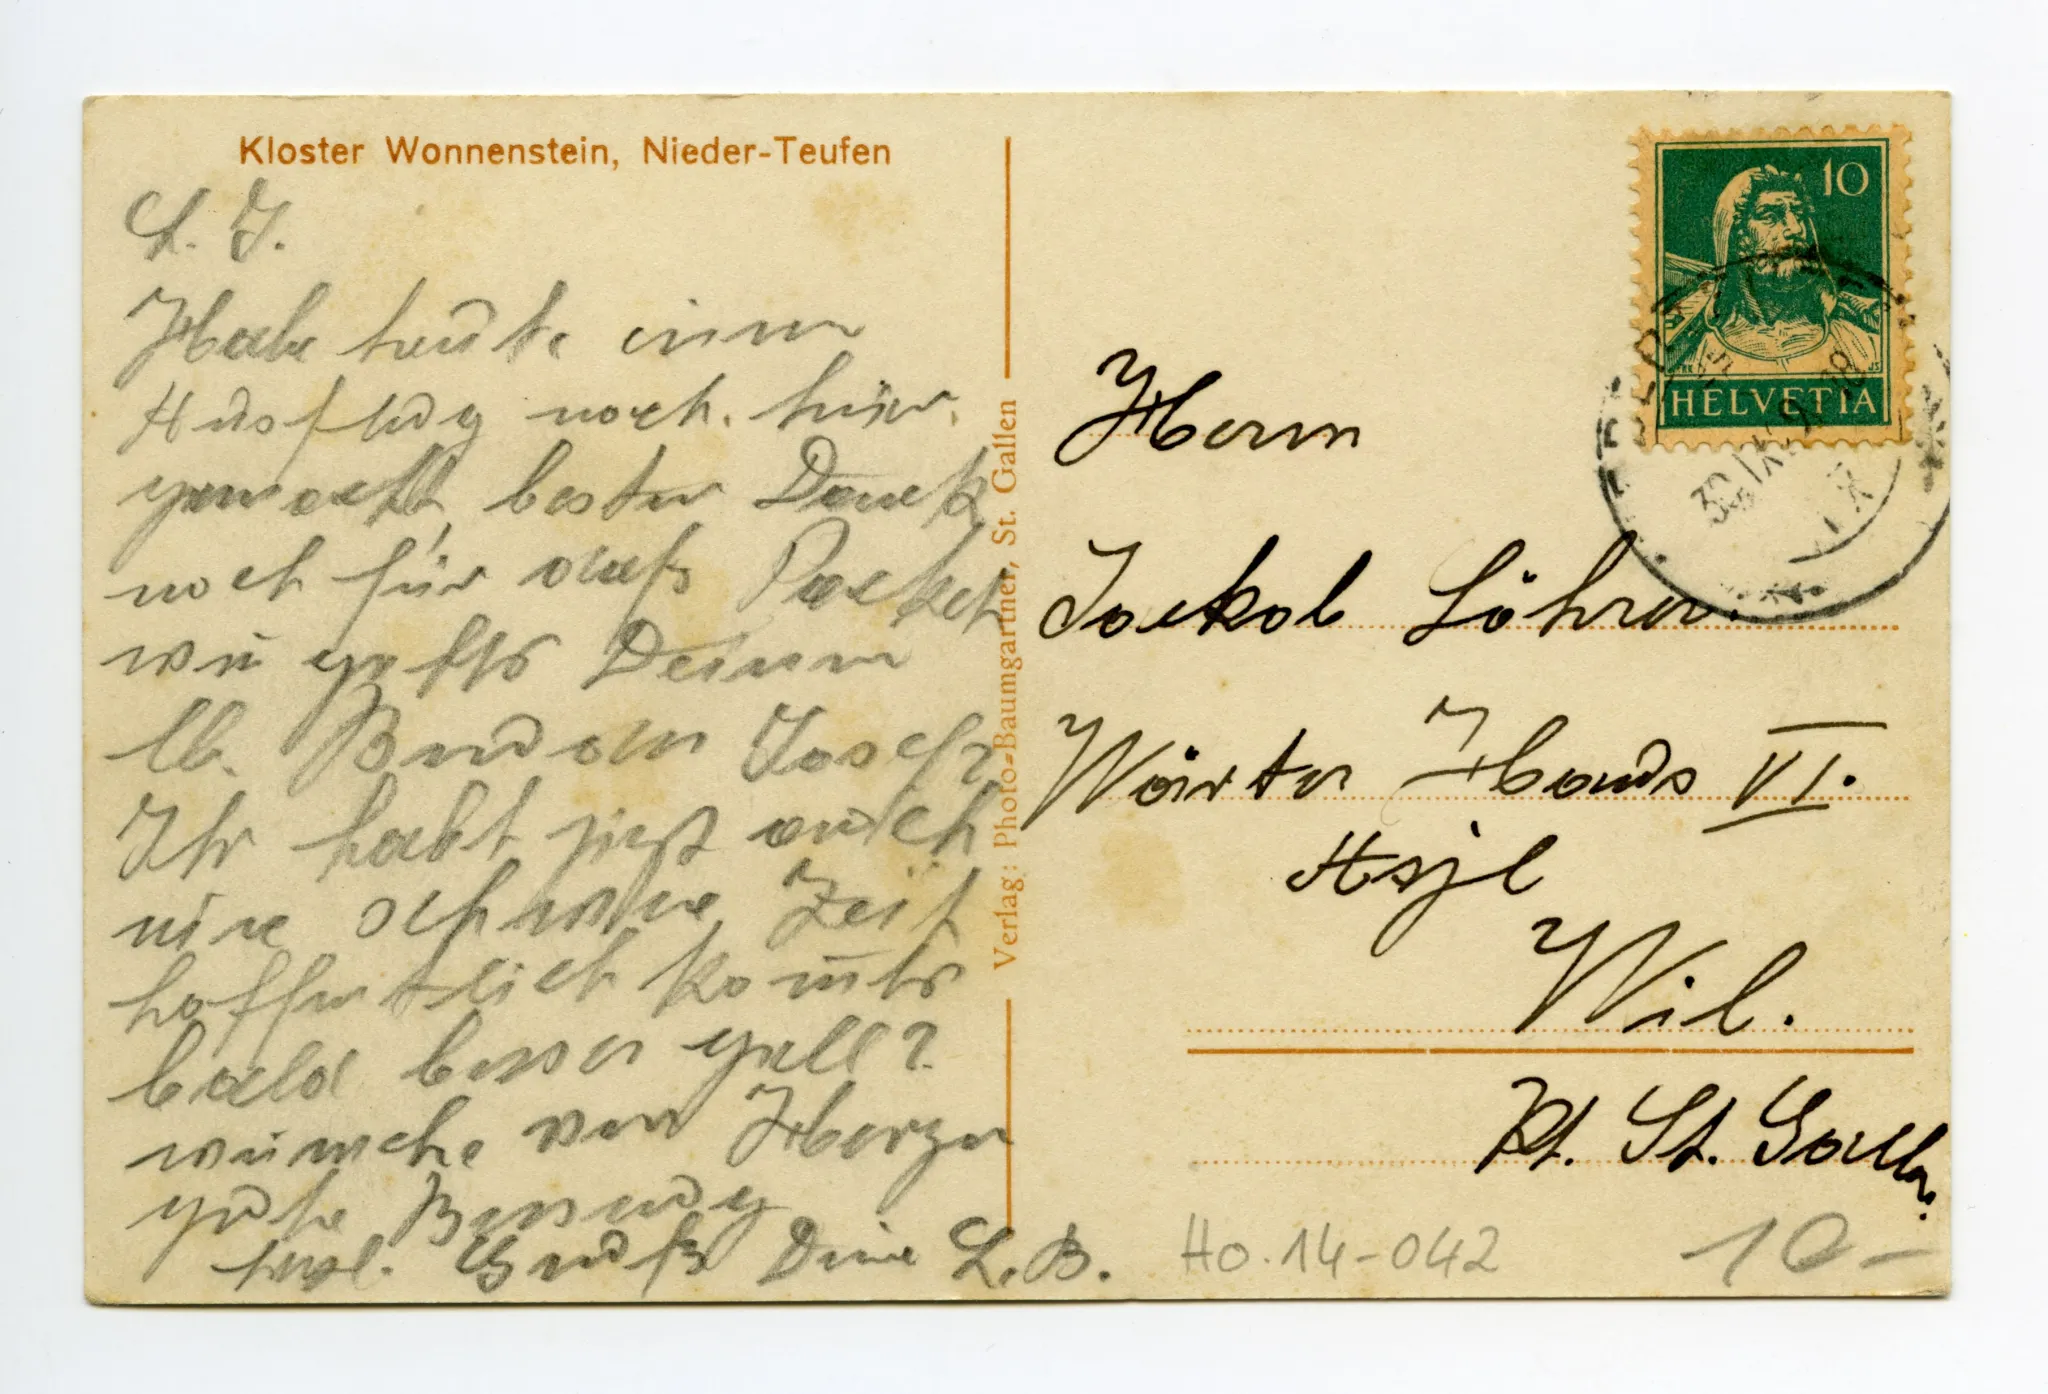 Kloster Wonnenstein, Nieder-Teufen
L. J.
Habe heute einen
Ausflug noch hier
gemacht, bester Dank
noch für das Packet
wie gehts Deinem
lb. Bruder Josef?
Ihr habt jetzt auch
eine schwere Zeit
hoffentlich kommts
bald besser
wünsche von Herzen
gute Besserung
herzl. Gruß Deine L. B.
Verlag: Photo-Baumgartner, St. Gallen
10
HELVETIA
30. IX.
Herrn
Jackob Löhrer.
Wärter Haus VI.
Asyl
Wil.
Kt. St. Gallen.
Ho. 14-042
10-